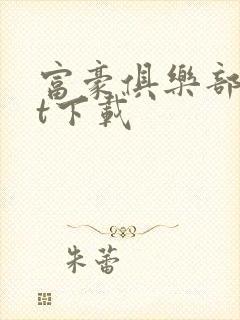 富豪俱樂部
t下載
朱蕾